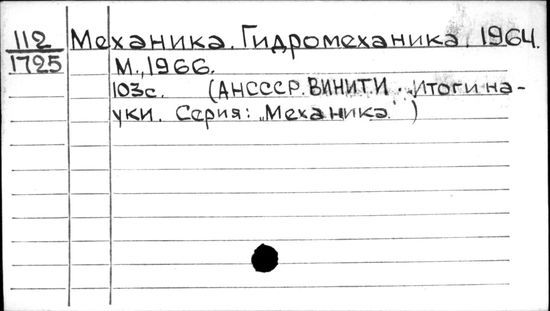 112 Механика. Гидромеханика. 1964.
1725 М., 1966.
103с. (АНСССР. ВИНИТИ. Итоги на-
уки. Серия: „Механика.")